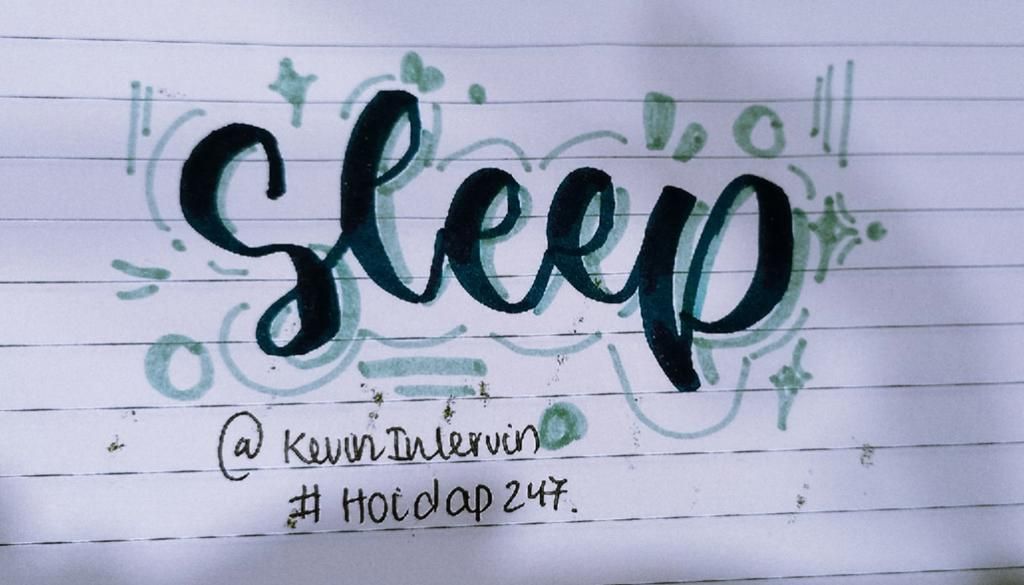 Sleep
@ KevinInlervin
# Hoidap 247.